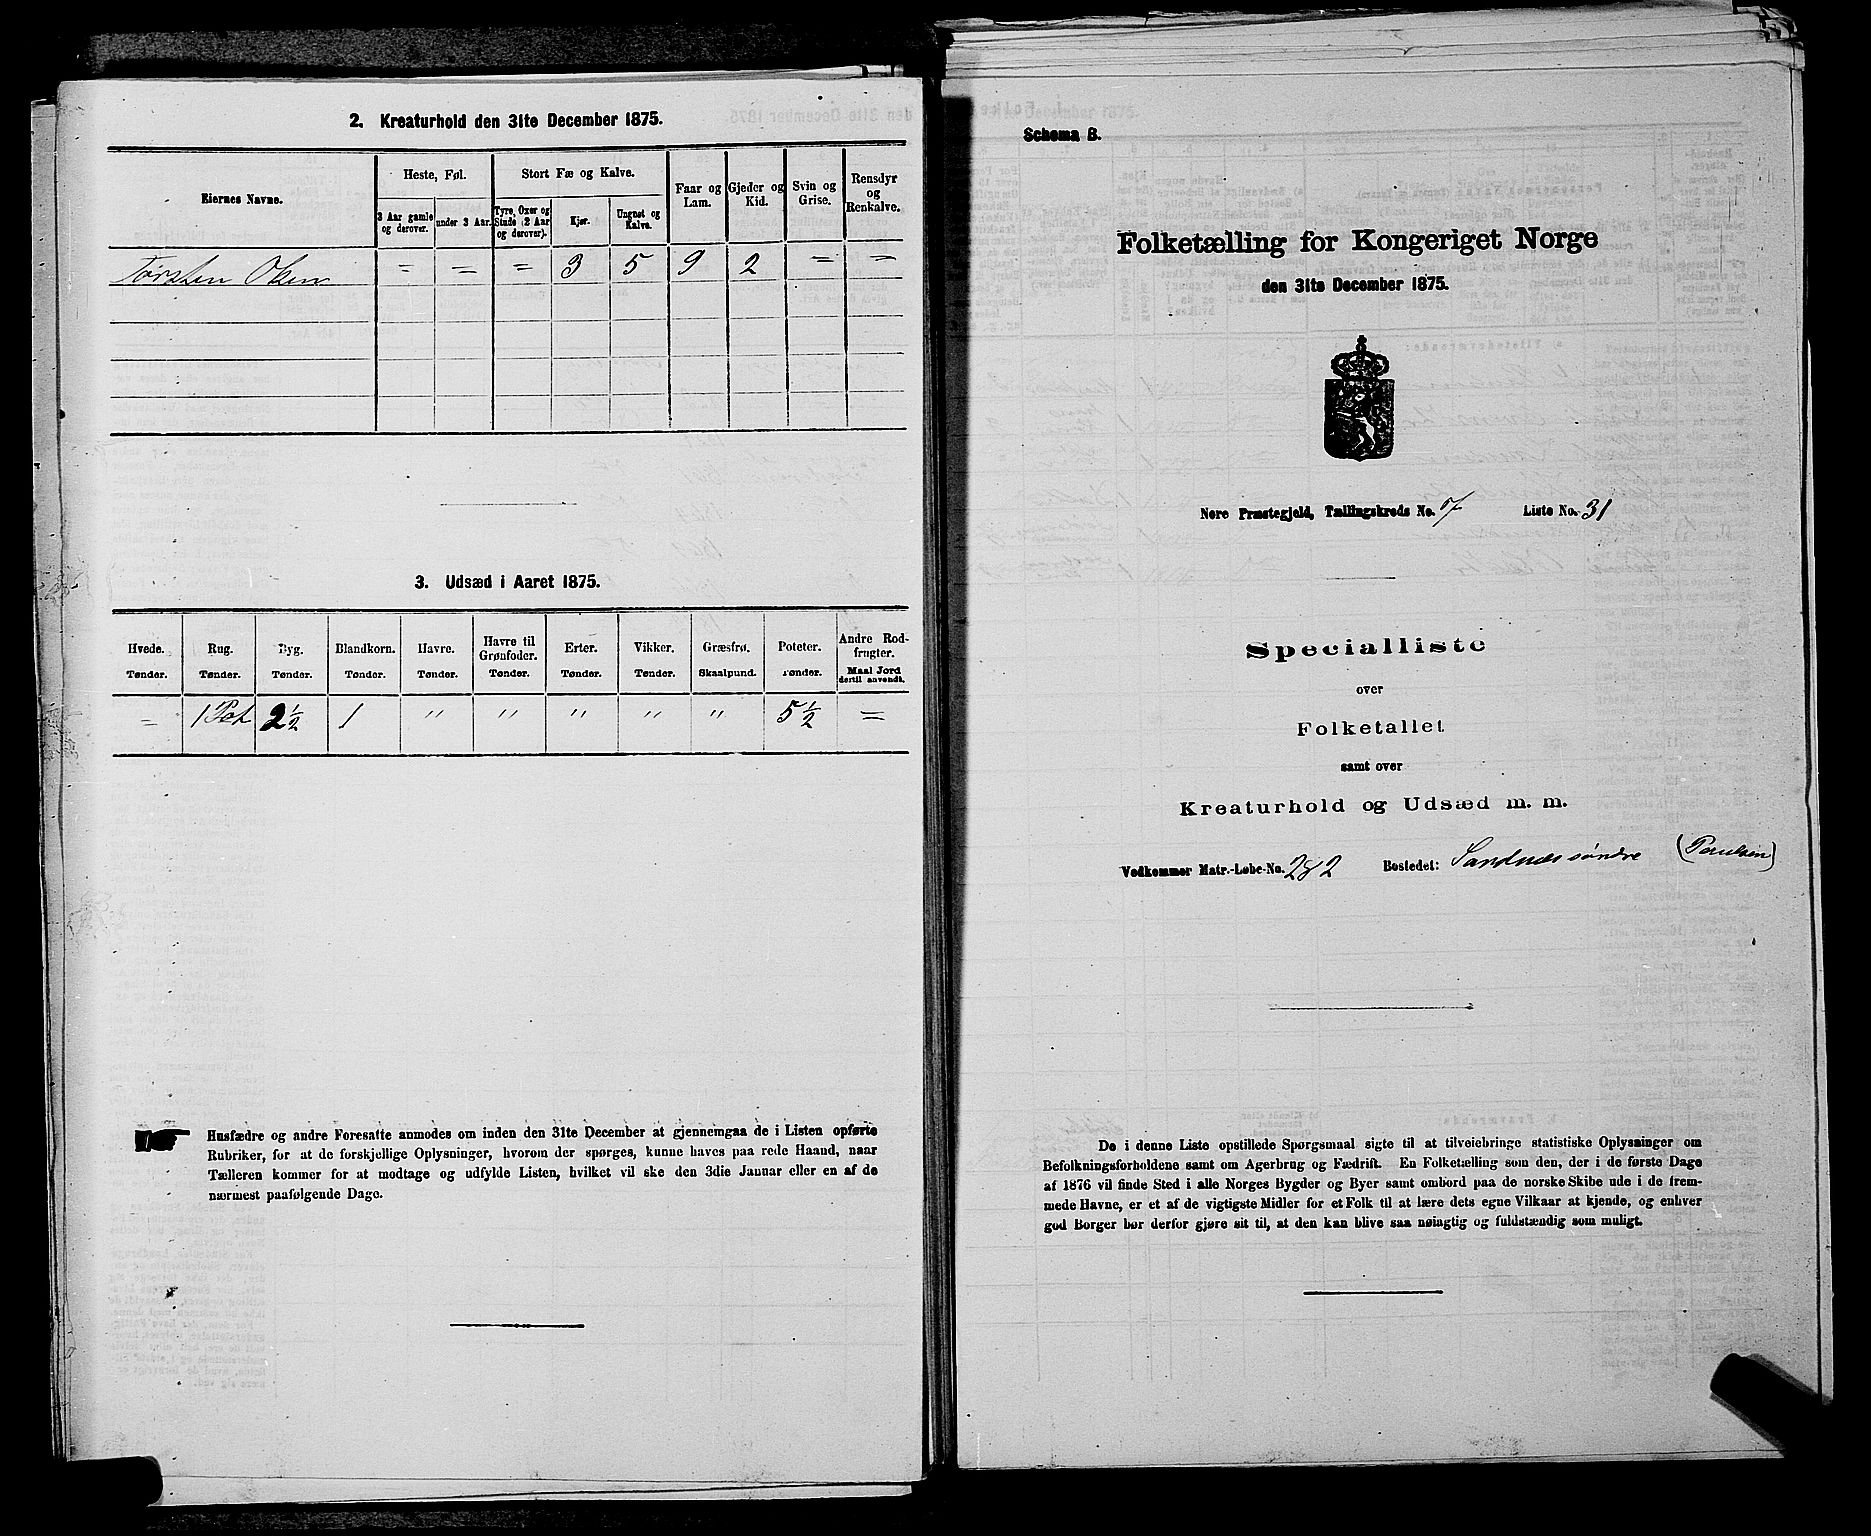 2. Kreaturhold den 31te December 1875.
Eiernes Navne.
Heste, Føl.
3 Aar gamle og derover.
under 3 Aar.
Stort Fæ og Kalve.
Tyre, Oxer og Stude (2 Aar og derover).
Kjør.
Ungnøt og Kalve.
Faar og Lam.
Gjeder og Kid.
Svin og Grise.
Rensdyr og Renkalve.
Tørsten Olsen = = = 3 5 9 2 = =
3. Udsæd i Aaret 1875.
Hvede. Rug. Byg. Blandkorn. Havre. Havre til Grønfoder. Erter. Vikker. Græsfrø. Poteter. Andre Rodfrugter.
Tønder. Tønder. Tønder. Tønder. Tønder. Tønder. Tønder. Tønder. Skaalpund. Tønder. Maal Jord dertil anvendt.
= 1 Pot 2 1/2 1 " " " " " 5 1/2 =
Husfædre og andre Foresatte anmodes om inden den 31te December at gjennemgaa de i Listen opførte
Rubriker, for at de forskjellige Oplysninger, hvorom der spørges, kunne haves paa rede Haand, naar
Tælleren kommer for at modtage og udfylde Listen, hvilket vil ske den 3die Januar eller en af de
nærmest paafølgende Dage.
Schema B.
Folketælling for Kongeriget Norge
den 31te December 1875.
Nore Præstegjeld, Tællingskreds No. 7 Liste No. 31
Specialliste
over
Folketallet
samt over
Kreaturhold og Udsæd m. m.
Vedkommer Matr.-Løbe-No. 282 Bostedet: Sandnæs søndre (Poulsen)
De i denne Liste opstillede Spørgsmaal sigte til at tilveiebringe statistiske Oplysninger om
Befolkningsforholdene samt om Agerbrug og Fædrift. En Folketælling som den, der i de første Dage
af 1876 vil finde Sted i alle Norges Bygder og Byer samt ombord paa de norske Skibe ude i de frem-
mede Havne, er et af de vigtigste Midler for et Folk til at lære dets egne Vilkaar at kjende, og enhver
god Borger bør derfor gjøre sit til, at den kan blive saa nøiagtig og fuldstændig som muligt.